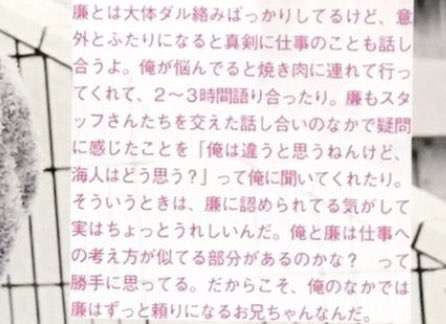 廉とは大体ダル絡みばっかりしてるけど、意
外とふたりになると真剣に仕事のことも話し
合うよ。俺が悩んでると焼き肉に連れて行っ
てくれて、2〜3時間語り合ったり。廉もスタ
ッフさんたちを交えた話し合いのなかで疑問
に感じたことを「俺は違うと思うねんけど、
海人はどう思う?」って俺に聞いてくれたり。
そういうときは、廉に認められてる気がして
実はちょっとうれしいんだ。俺と廉は仕事へ
の考え方が似てる部分があるのかな? って
勝手に思ってる。だからこそ、俺のなかでは
廉はずっと頼りになるお兄ちゃんなんだ。